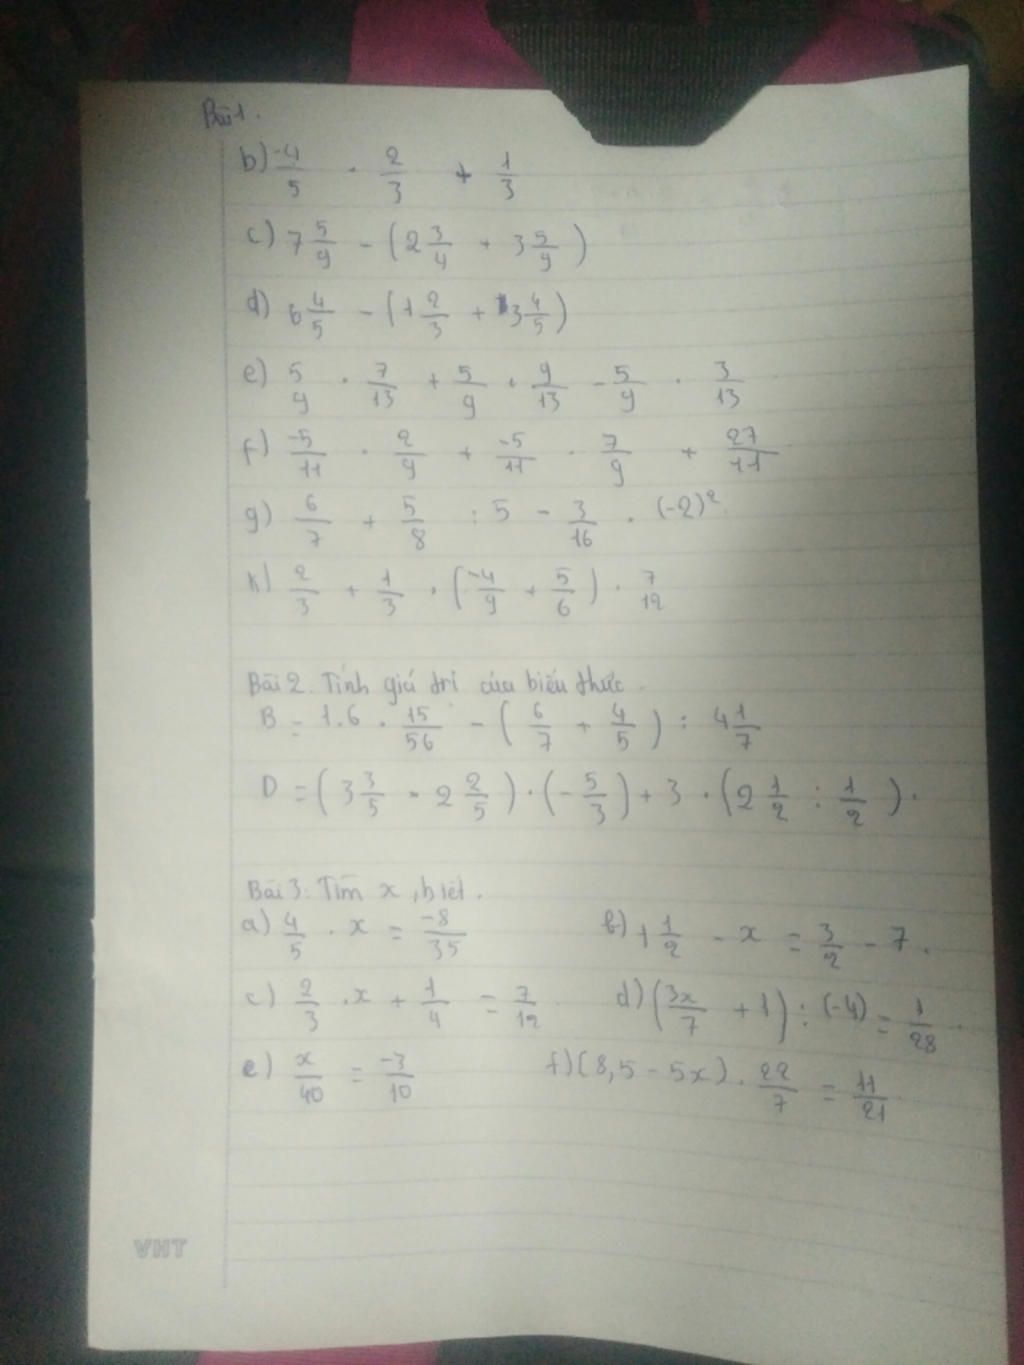 Bài 1.
b) -4/5 . 2/3 + 1/3
c) 7 5/9 - (2 3/4 + 3 5/9)
d) 6 4/5 - (1 2/3 + 3 4/5)
e) 5/9 . 7/13 + 5/9 . 9/13 - 5/9 . 3/13
f) -5/11 . 2/9 + -5/11 . 7/9 + 27/11
g) 6/7 + 5/8 : 5 - 3/16 . (-2)²
k) 2/3 + 1/3 . (-4/9 + 5/6) . 7/12
Bài 2. Tính giá trị của biểu thức.
B = 1.6 . 15/56 - (6/7 + 4/5) : 4 1/7
D = (3 3/5 - 2 2/5) . (-5/3) + 3 . (2 1/2 : 1/2).
Bài 3: Tìm x, biết.
a) 4/5 . x = -8/35 b) 1 1/2 - x = 3/2 - 7.
c) 2/3 . x + 1/4 = 7/12 d) (3x/7 + 1) : (-4) = 1/28.
e) x/40 = -3/10 f) (8,5 - 5x) . 22/7 = 11/21
VHT